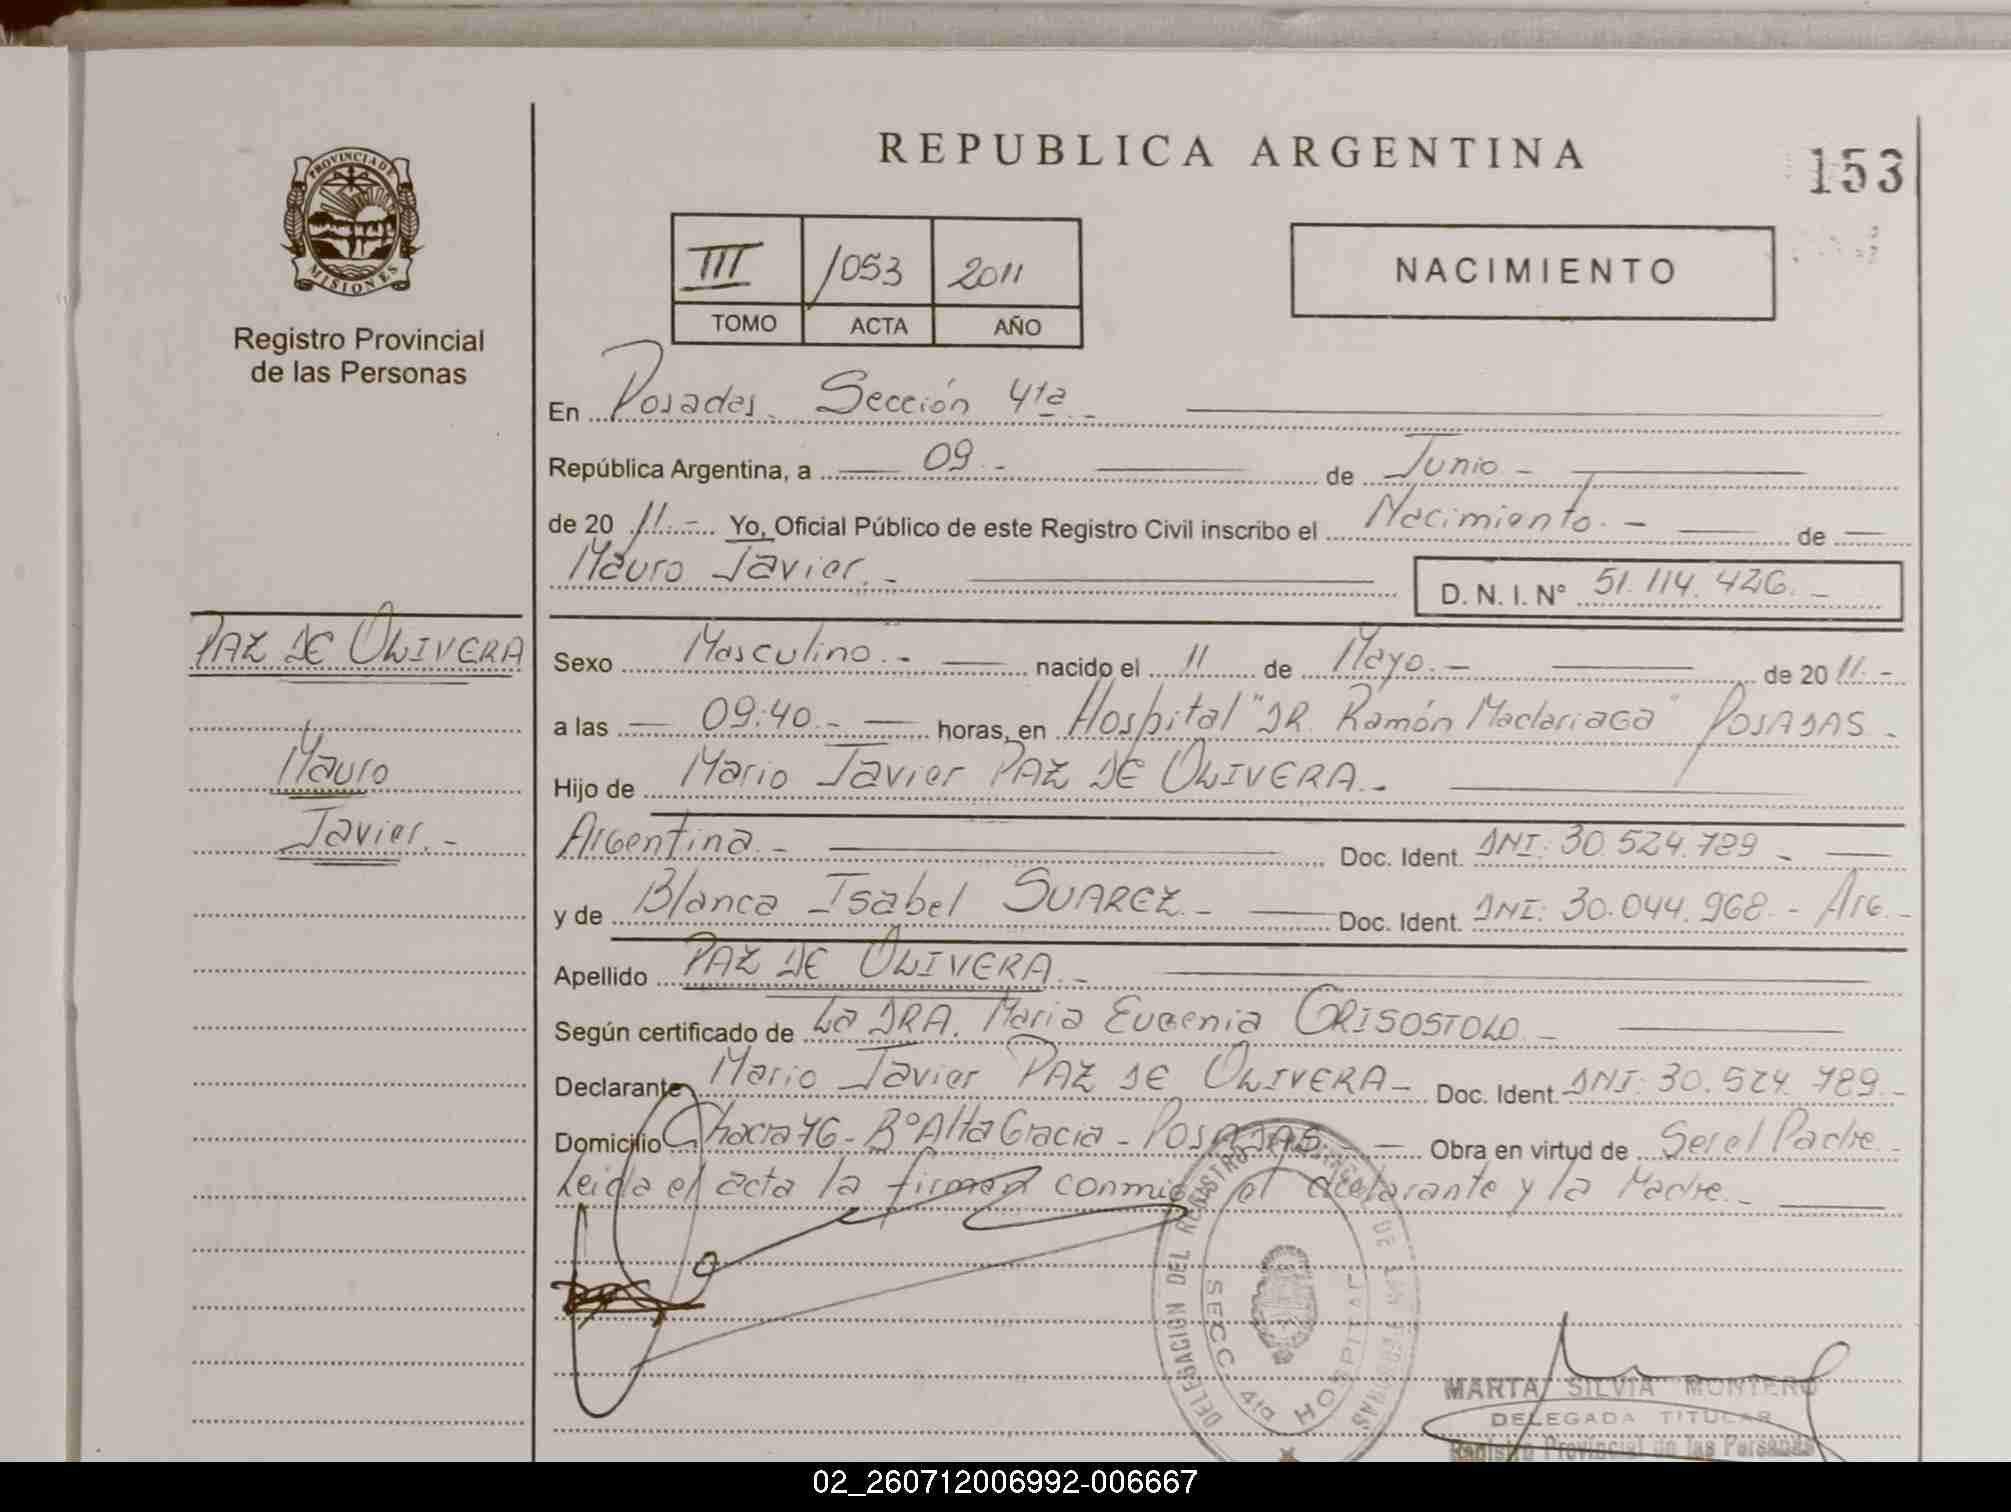 REPUBLICA ARGENTINA
153
PROVINCIA DE
MISIONES
Registro Provincial
de las Personas
III /053 2011
TOMO ACTA AÑO
NACIMIENTO
En Posadas. Sección 4ta -
República Argentina, a 09.- de Junio -
de 20 11.- Yo, Oficial Público de este Registro Civil inscribo el Nacimiento. - de
Mauro Javier. -
D. N. I. N° 51.114.426. -
PAZ DE OLIVERA
Mauro
Javier. -
Sexo Masculino. - nacido el 11 de Mayo. - de 20 11. -
a las 09:40. - horas, en Hospital "DR. Ramón Madariaga" POSADAS -
Hijo de Mario Javier PAZ DE OLIVERA. -
Argentina. - Doc. Ident. DNI: 30.524.789 -
y de Blanca Isabel SUAREZ. - Doc. Ident. DNI: 30.044.968. - Arg. -
Apellido PAZ DE OLIVERA. -
Según certificado de La DRA. Maria Eugenia GRISOSTOLO. -
Declarante Mario Javier PAZ DE OLIVERA - Doc. Ident. DNI: 30.524.789. -
Domicilio Chacra 76 - B° Alta Gracia - POSADAS. - Obra en virtud de Ser el Padre. -
Leida el acta la firman conmigo el declarante y la Madre. -
DELEGACION DEL REGISTRO PROVINCIAL DE LAS PERSONAS
SECC. 4ta HOSPITAL
MARTA SILVIA MONTERO
DELEGADA TITULAR
Registro Provincial de las Personas
02_260712006992-006667